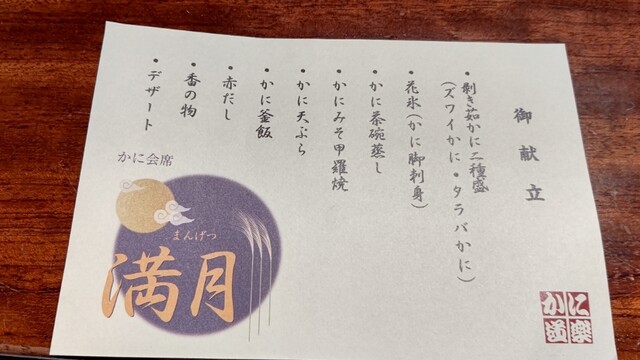 御献立
・剥き茹かに二種盛
(ズワイかに・タラバかに)
・花氷(かに脚刺身)
・かに茶碗蒸し
・かにみそ甲羅焼
・かに天ぷら
・かに釜飯
・赤だし
・香の物
・デザート
かに会席
まんげつ
満月
かに
道楽